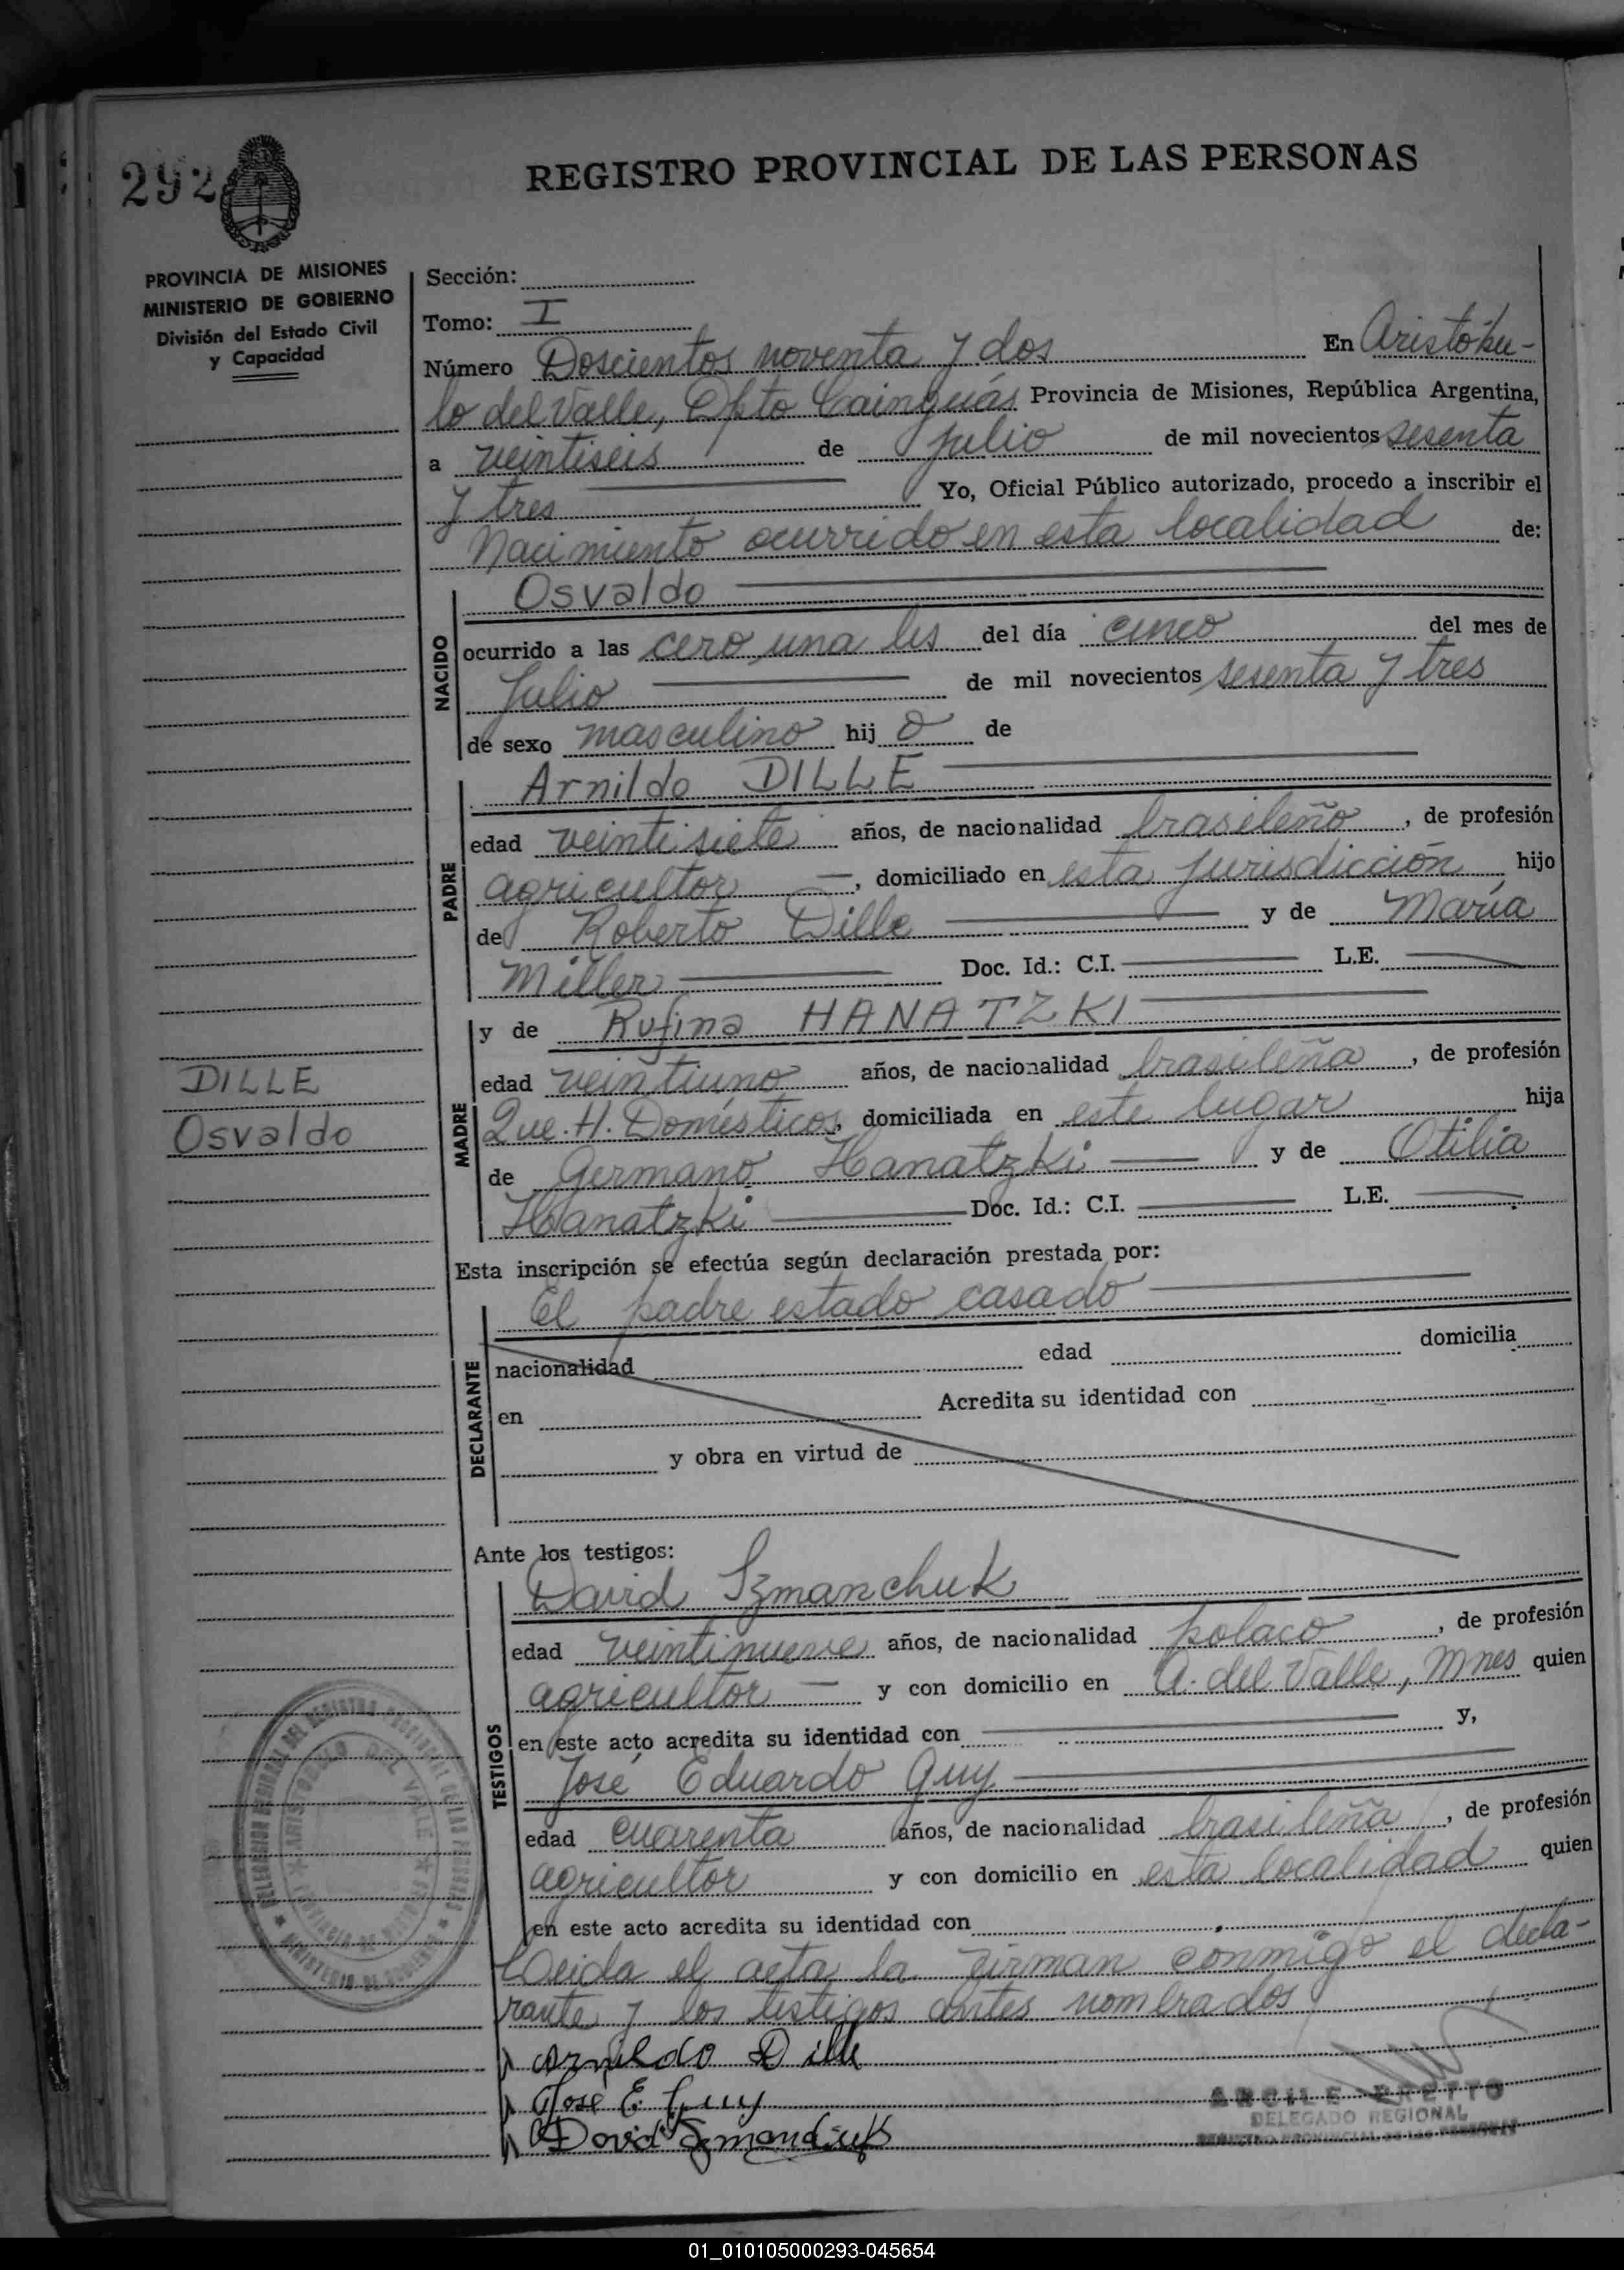 292
REGISTRO PROVINCIAL DE LAS PERSONAS
PROVINCIA DE MISIONES
MINISTERIO DE GOBIERNO
División del Estado Civil
y Capacidad
Sección:
Tomo: I
Número Doscientos noventa y dos En Aristóbu-
lo del Valle, Dpto Cainguás Provincia de Misiones, República Argentina,
a veintiseis de julio de mil novecientos sesenta
y tres Yo, Oficial Público autorizado, procedo a inscribir el
Nacimiento ocurrido en esta localidad de:
NACIDO
Osvaldo
ocurrido a las cero una hs del día cinco del mes de
Julio de mil novecientos sesenta y tres
de sexo masculino hij o de
PADRE
Arnildo DILLE
edad veintisiete años, de nacionalidad brasileño, de profesión
agricultor, domiciliado en esta jurisdicción hijo
de Roberto Dille y de María
Miller Doc. Id.: C.I. L.E.
MADRE
y de Rufina HANATZKI
edad veintiuno años, de nacionalidad brasileña, de profesión
Que. H. Domésticos, domiciliada en este lugar hija
de Germano Hanatzki y de Otilia
Hanatzki Doc. Id.: C.I. L.E.
DILLE
Osvaldo
Esta inscripción se efectúa según declaración prestada por:
DECLARANTE
El padre estado casado
nacionalidad edad domicilia
en Acredita su identidad con
y obra en virtud de
Ante los testigos:
TESTIGOS
David Szmanchuk
edad veintinueve años, de nacionalidad polaco, de profesión
agricultor y con domicilio en A. del Valle, Mnes quien
en este acto acredita su identidad con y,
José Eduardo Guy
edad cuarenta años, de nacionalidad brasileña, de profesión
agricultor y con domicilio en esta localidad quien
en este acto acredita su identidad con
Leida el acta la firman conmigo el decla-
rante y los testigos antes nombrados
Arnildo Dille
Jose E. Guy
David
DELEGADO REGIONAL
REGISTRO PROVINCIAL DE LAS PERSONAS
01_010105000293-045654